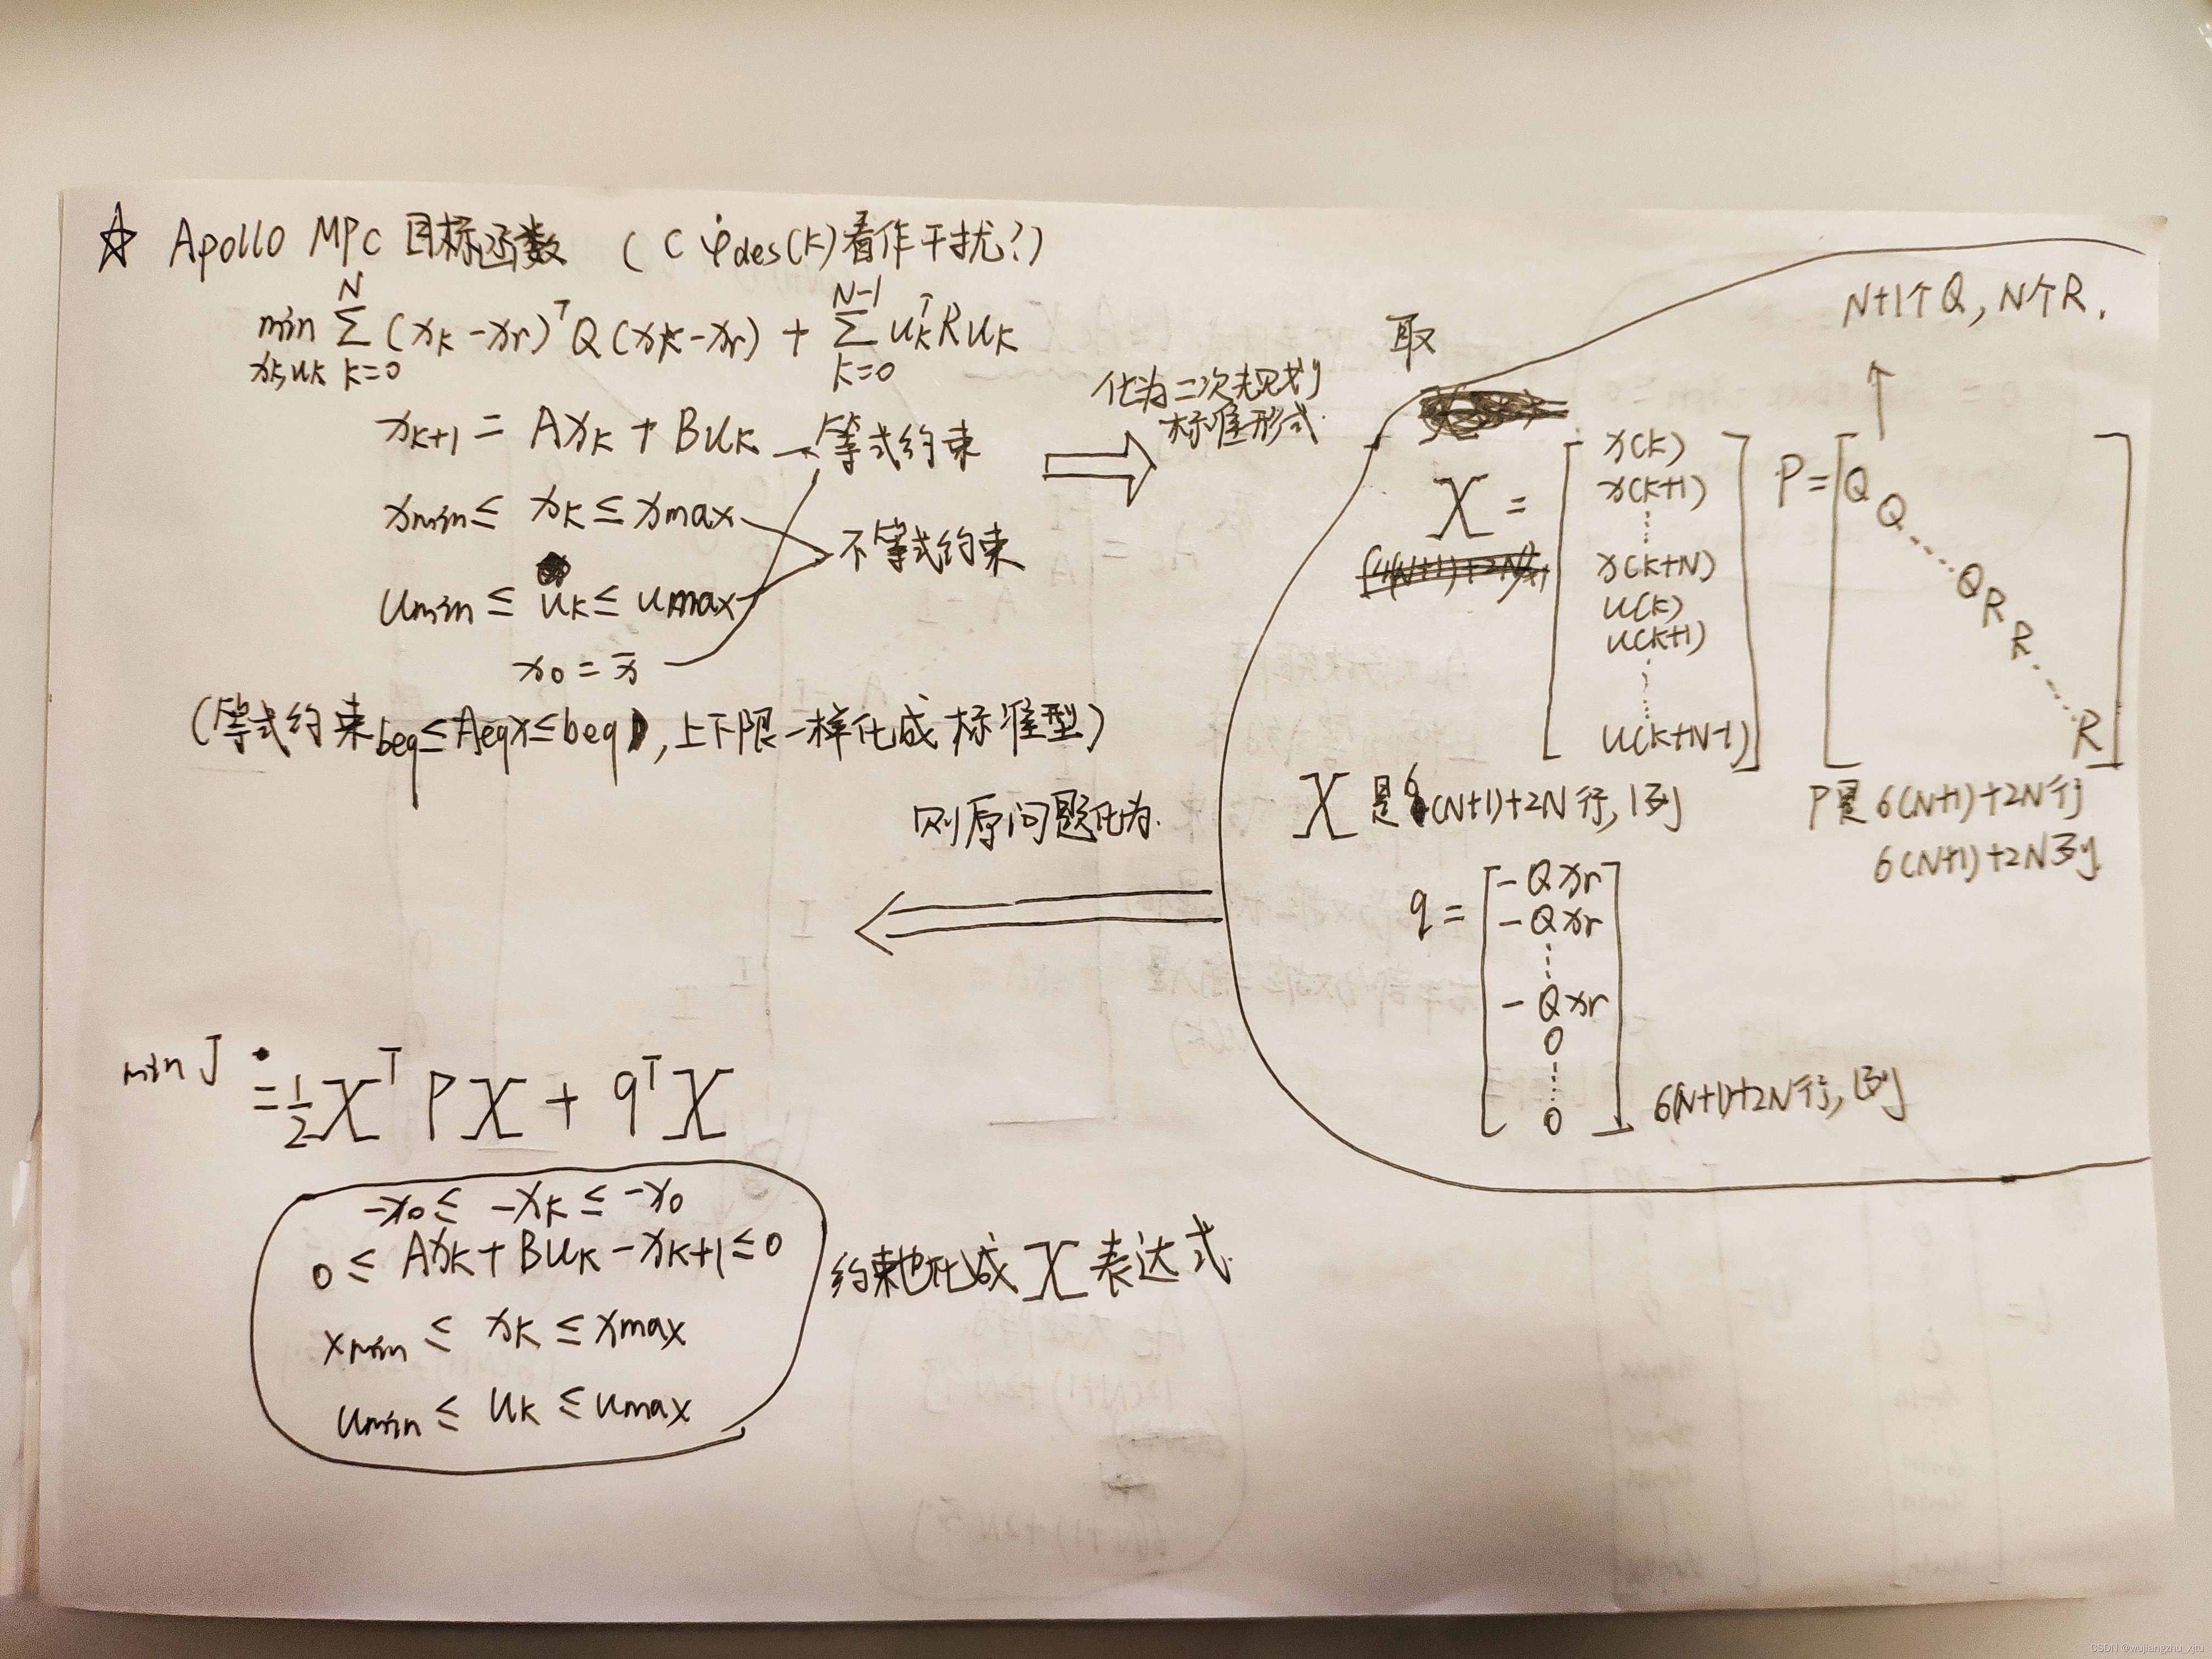 ☆ Apollo MPC 目标函数 (C φ̇des(k)看作干扰?)
min_{xk,uk} Σ_{k=0}^{N} (xk - xr)^T Q (xk - xr) + Σ_{k=0}^{N-1} uk^T R uk
xk+1 = Axk + Buk → 等式约束
xmin ≤ xk ≤ xmax
不等式约束
umin ≤ uk ≤ umax
x0 = x̄
(等式约束 beq ≤ Aeq x ≤ beq, 上下限一样化成标准型)
化为二次规划
标准形式.
取
N+1个Q, N个R.
X = [x(k) x(k+1) ⋮ x(k+N) u(k) u(k+1) ⋮ u(k+N-1)]
P = [Q Q ⋱ Q R R ⋱ R]
X 是6(N+1)+2N行, 1列
P是 6(N+1)+2N行
6(N+1)+2N列.
q = [-Qxr -Qxr ⋮ -Qxr 0 ⋮ 0]
6(N+1)+2N行, 1列
则原问题化为.
min J = 1/2 X^T P X + q^T X
-x0 ≤ -xk ≤ -x0
0 ≤ Axk + Buk - xk+1 ≤ 0
xmin ≤ xk ≤ xmax
umin ≤ uk ≤ umax
约束也化成 X 表达式.
CSDN @wujiangzhu_xjtu